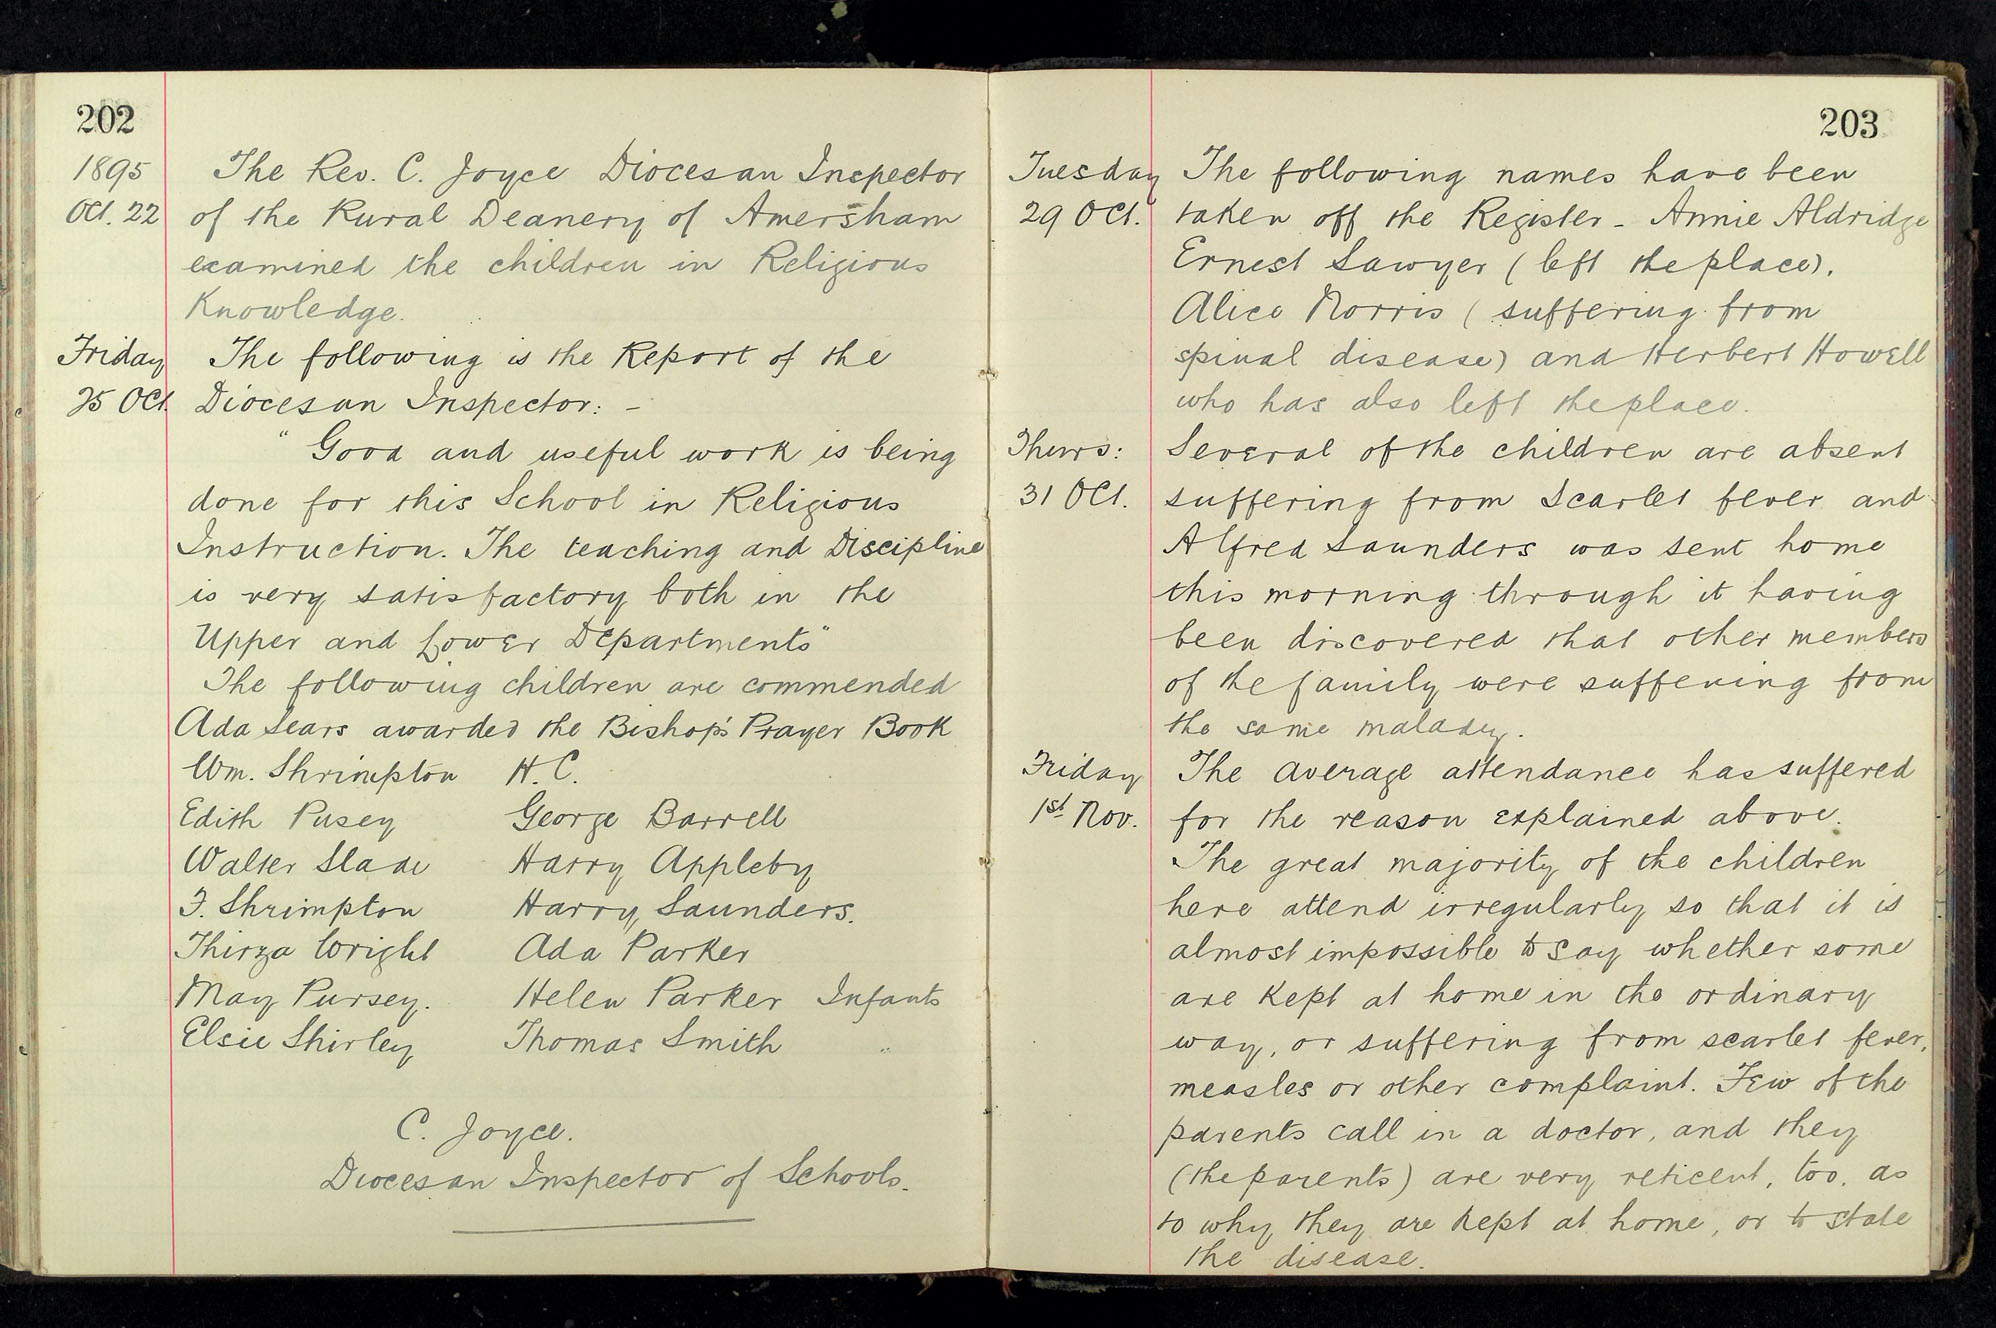 202
1895 The Rev. C. Joyce Diocesan Inspector
Oct. 22 of the Rural Deanery of Amersham
examined the children in Religious
Knowledge.
Friday The following is the Report of the
25 Oct. Diocesan Inspector: -
" Good and useful work is being
done for this School in Religious
Instruction. The teaching and Discipline
is very satisfactory both in the
Upper and Lower Departments"
The following children are commended
Ada Sears awarded the Bishop's Prayer Book
Wm. Shrimpton H.C.
Edith Pusey George Barrell
Walter Slade Harry Appleby
F. Shrimpton Harry Saunders.
Thirza Wright Ada Parker
May Pursey. Helen Parker Infants
Elsie Shirley Thomas Smith "
C. Joyce.
Diocesan Inspector of Schools.
203
Tuesday The following names have been
29 Oct. taken off the Register - Annie Aldridge
Ernest Sawyer (left the place).
Alice Norris (suffering from
spinal disease) and Herbert Howell
who has also left the place.
Thurs: Several of the children are absent
31 Oct. suffering from Scarlet fever and
Alfred Saunders was sent home
this morning through it having
been discovered that other members
of the family were suffering from
the same malady.
Friday The average attendance has suffered
1st Nov. for the reason explained above.
The great majority of the children
here attend irregularly so that it is
almost impossible to say whether some
are kept at home in the ordinary
way, or suffering from scarlet fever,
measles or other complaint. Few of the
parents call in a doctor, and they
(the parents) are very reticent, too, as
to why they are kept at home, or to state
the disease.